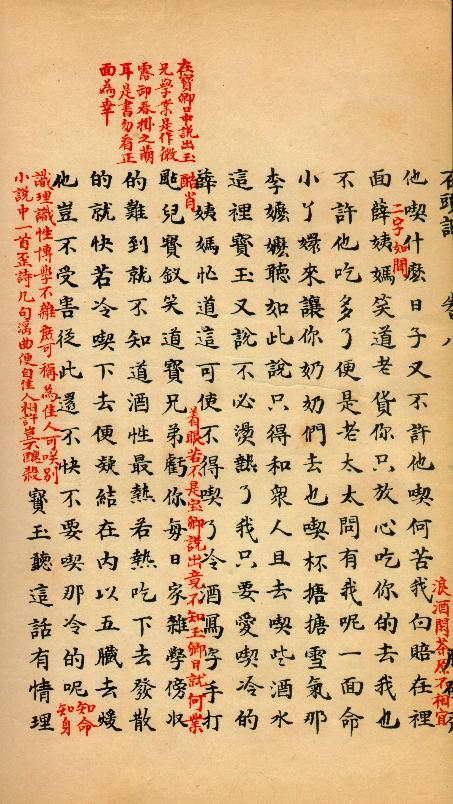 石頭記 卷八
他喫什麼日子又不許他喫何苦我白賠在裡
浪酒閑茶原不相宜
面薛姨媽笑道老貨你只放心吃你的去我也
二字如聞
不許他吃多了便是老太太問有我呢一面命
小丫嬛來讓你奶奶們去也喫杯搪搪雪氣那
李嬷嬷聽如此說只得和衆人且去喫些酒水
這裡寶玉又說不必燙熱了我只要愛喫冷的
薛姨媽忙道這可使不得喫了冷酒寫字手打
酷肖
颭兒寶釵笑道寶兄弟虧你每日家雜學傍收
着眼若不是宝卿說出竟不知玉卿日就何業
在寶卿口中說出玉
兄學業是作微
露卸春掛之萌
耳是書勿看正
面為幸
的難到就不知道酒性最熱若熱吃下去發散
的就快若冷喫下去便凝結在内以五臟去煖
他豈不受害從此還不快不要喫那冷的呢
知命
知身
識理識性博學不雜庶可稱為佳人可咲別
小說中一首歪詩几句淫曲便自佳人相許豈不醜殺
寶玉聽這話有情理